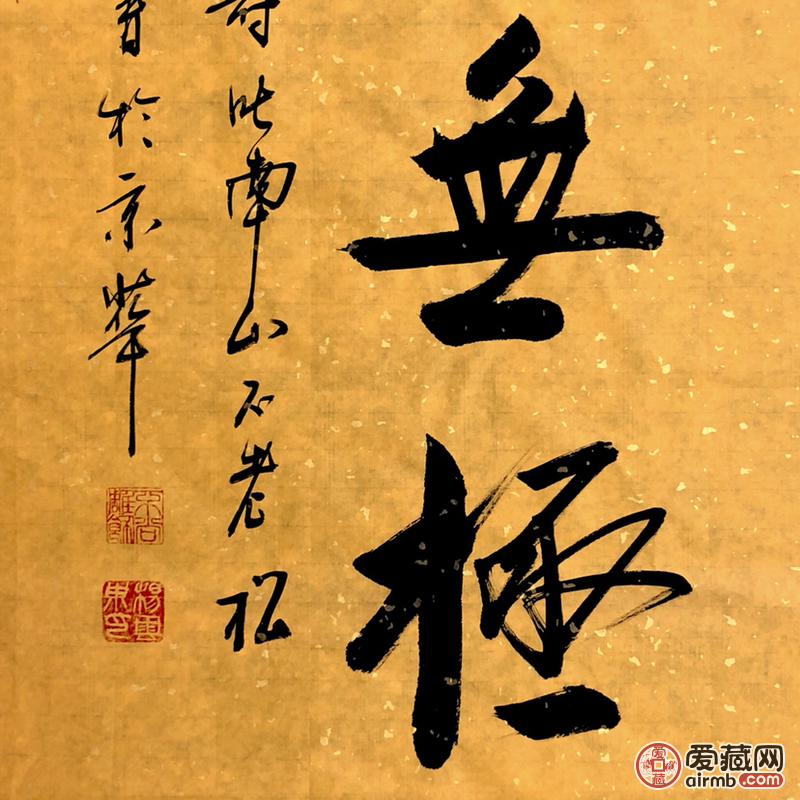 無極
寿比南山不老松
於京華
爱藏网
airmb.com